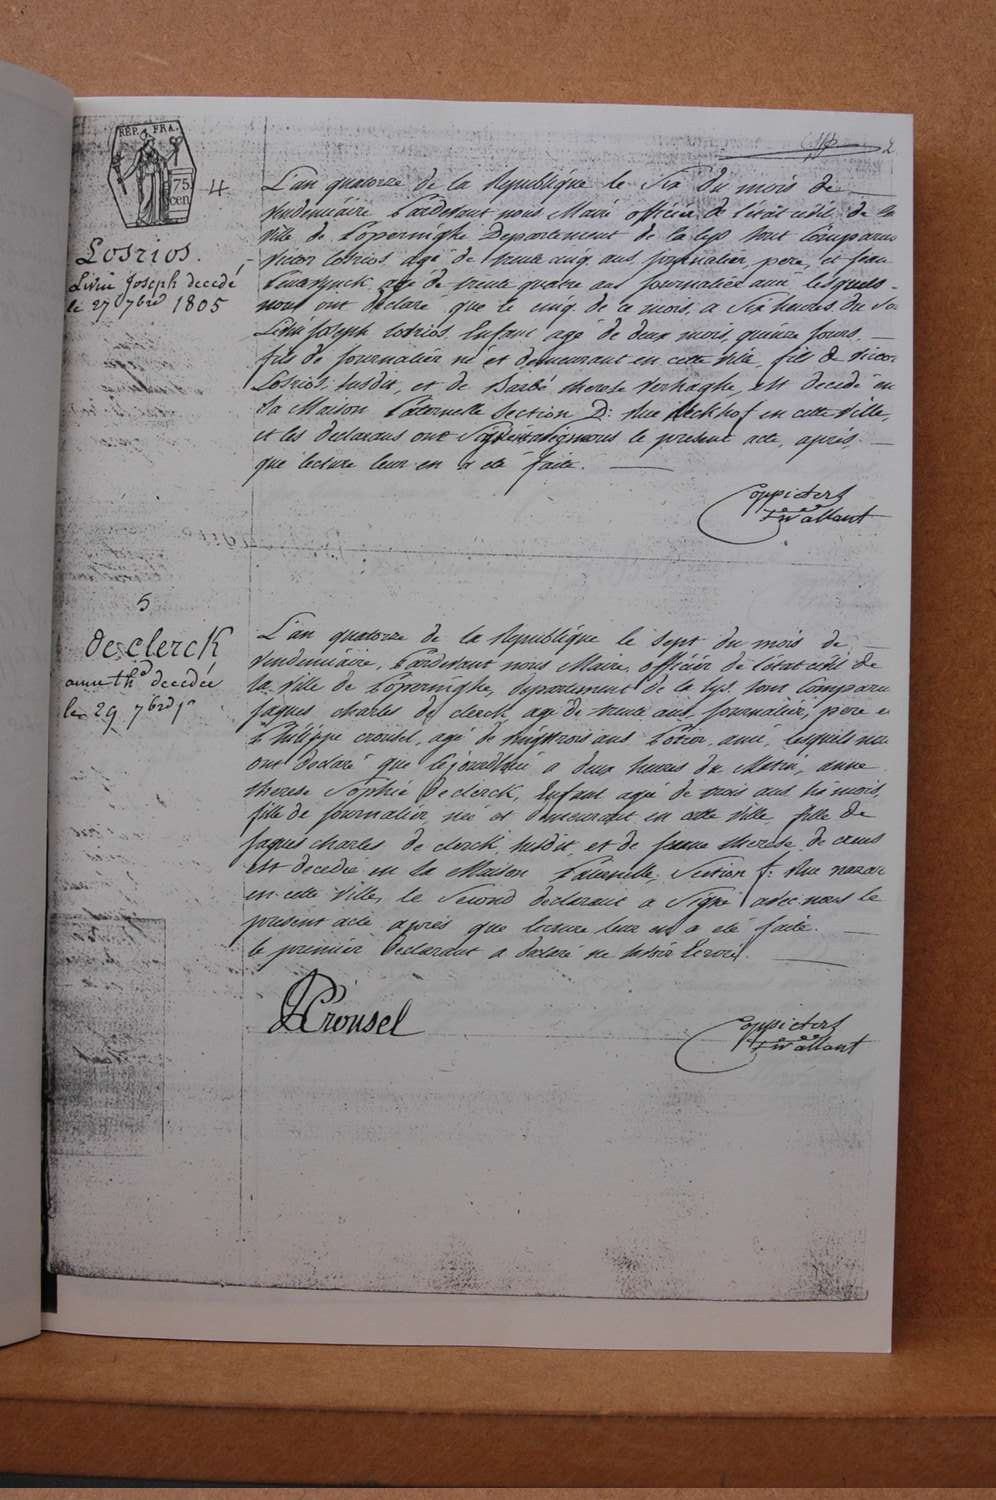 2
REP. FRA.
75
cen
4
L'an quatorze de la Republique le Six du mois de
Vendemiaire Pardevant nous Maire officier de l'état civil de la
ville de Poperinghe Departement de la Lys sont comparus
Losrios.
Livin Joseph decedé
le 27 7bre 1805
Victor Losrios agé de trente cinq ans journalier, pere, et
agé de trente quatre ans journalier ami, lesquels
nous ont declaré que le cinq de ce mois, a six heures du
Livin Joseph Losrios Enfant agé de deux mois, quinze jours,
fils de journalier né et demeurant en cette ville, fils de Victor
Losrios susdit, et de Barbe therese Verhaghe, est decedé en
sa Maison Paternelle Section D: Rue in cette ville,
et les declarans ont le present acte, après
que lecture leur en a eté faite.
Coppieters
Twallant
5
de clerck
anne thd decedée
le 29 7bre
L'an quatorze de la Republique le sept du mois de
Vendemiaire, Pardevant nous Maire, officier de l'état civil de
la ville de Poperinghe, departement de la Lys sont comparu
jaques charles de clerck, agé de trente ans, journalier, pere e
Philippe crousel, agé de vingt trois ans Potier, ami, lesquels nous
ont declaré que a deux heures du Matin, anne
therese Sophie De clerck, Enfant agé de trois ans six mois,
fille de journalier, née et demeurant en cette ville fille de
jaques charles de clerck, susdit, et de jeanne therese de
est decedée en sa Maison Paternelle, Section f: Rue
en cette ville, le Second declarant a Signé avec nous le
present acte après que lecture leur en a eté faite.
le premier declarant a declaré ne savoir Ecrire.
PCrousel
Coppieters
Twallant